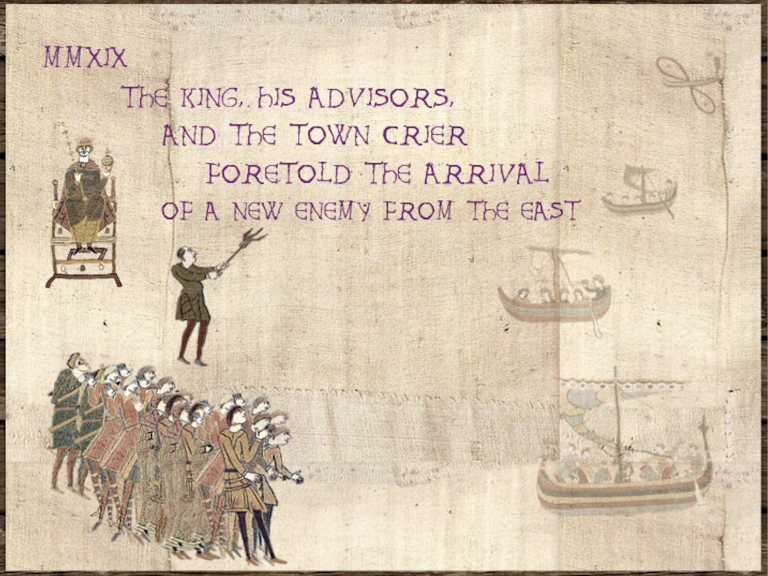 MMXIX
THE KING, HIS ADVISORS,
AND THE TOWN CRIER
FORETOLD THE ARRIVAL
OF A NEW ENEMY FROM THE EAST